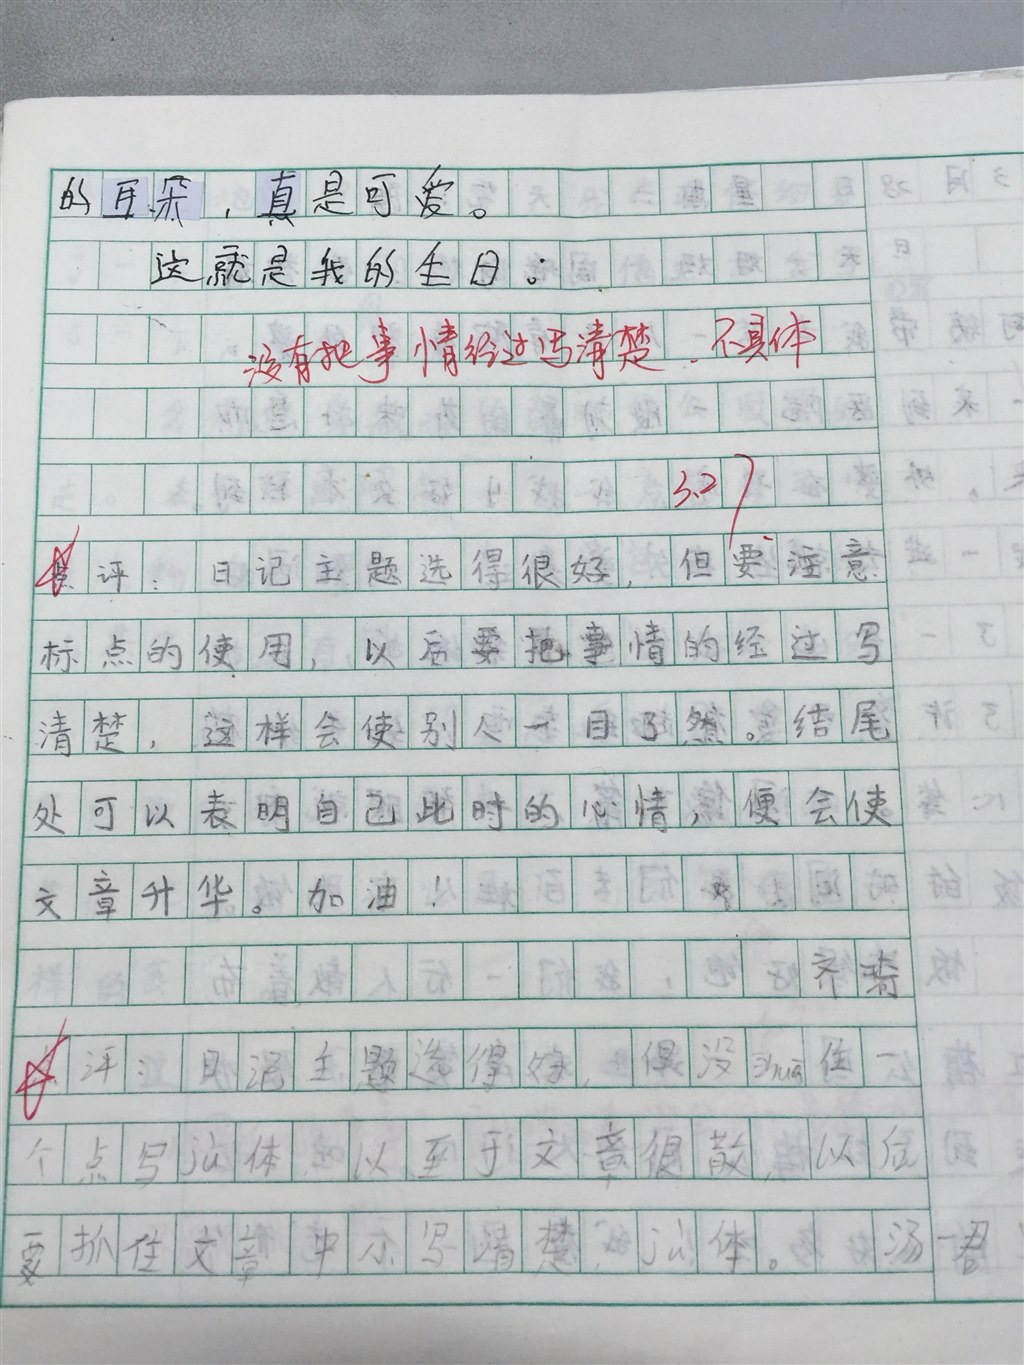 的耳朵，真是可爱。
这就是我的生日。
没有把事情经过写清楚．不具体
3.27
点评：日记主题选得很好，但要注意
标点的使用，以后要把事情的经过写
清楚，这样会使别人一目了然。结尾
处可以表明自己此时的心情，便会使
文章升华。加油！
齐琦
评：日记主题选得好，但没zhua住一
个点写ju体，以至于文章很散，以后
要抓住文章中心写清楚，ju体。 汤一君